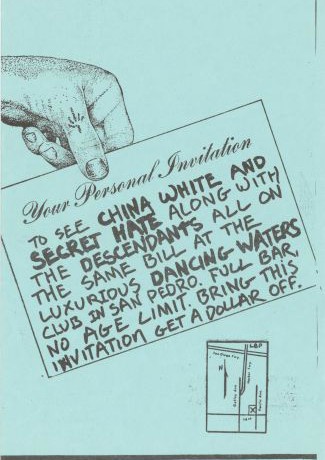 Your Personal Invitation
TO SEE CHINA WHITE AND
SECRET HATE ALONG WITH
THE DESCENDANTS ALL ON
THE SAME BILL AT THE
LUXURIOUS DANCING WATERS
CLUB IN SAN PEDRO. FULL BAR
NO AGE LIMIT. BRING THIS
INVITATION GET A DOLLAR OFF.
LBP
N